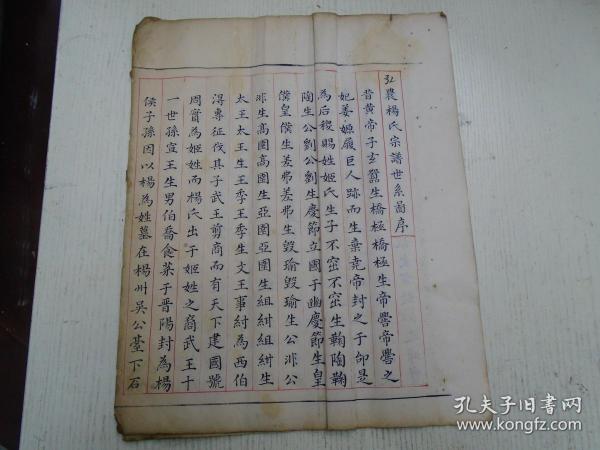 弘農楊氏宗譜世系啚序
昔黄帝子玄嚣生橋極橋極生帝嚳帝嚳之
妃姜嫄履巨人跡而生棄堯帝封之于邰是
為后稷賜姓姬氏生子不窋不窋生鞠陶鞠
陶生公劉公劉生慶節立國于豳慶節生皇
僕皇僕生差弗差弗生毀瑜毀瑜生公非公
非生高圉高圉生亞圉亞圉生組紺組紺生
太王太王生王季王季生文王事紂為西伯
淂專征伐其子武王剪商而有天下建國號
周實為姬姓而楊氏出于姬姓之裔武王十
一世孫宣王生男伯喬食菜于晋陽封為楊
侯子孫因以楊為姓墓在楊州吳公䑓下石
孔夫子旧書网
www.kongfz.com